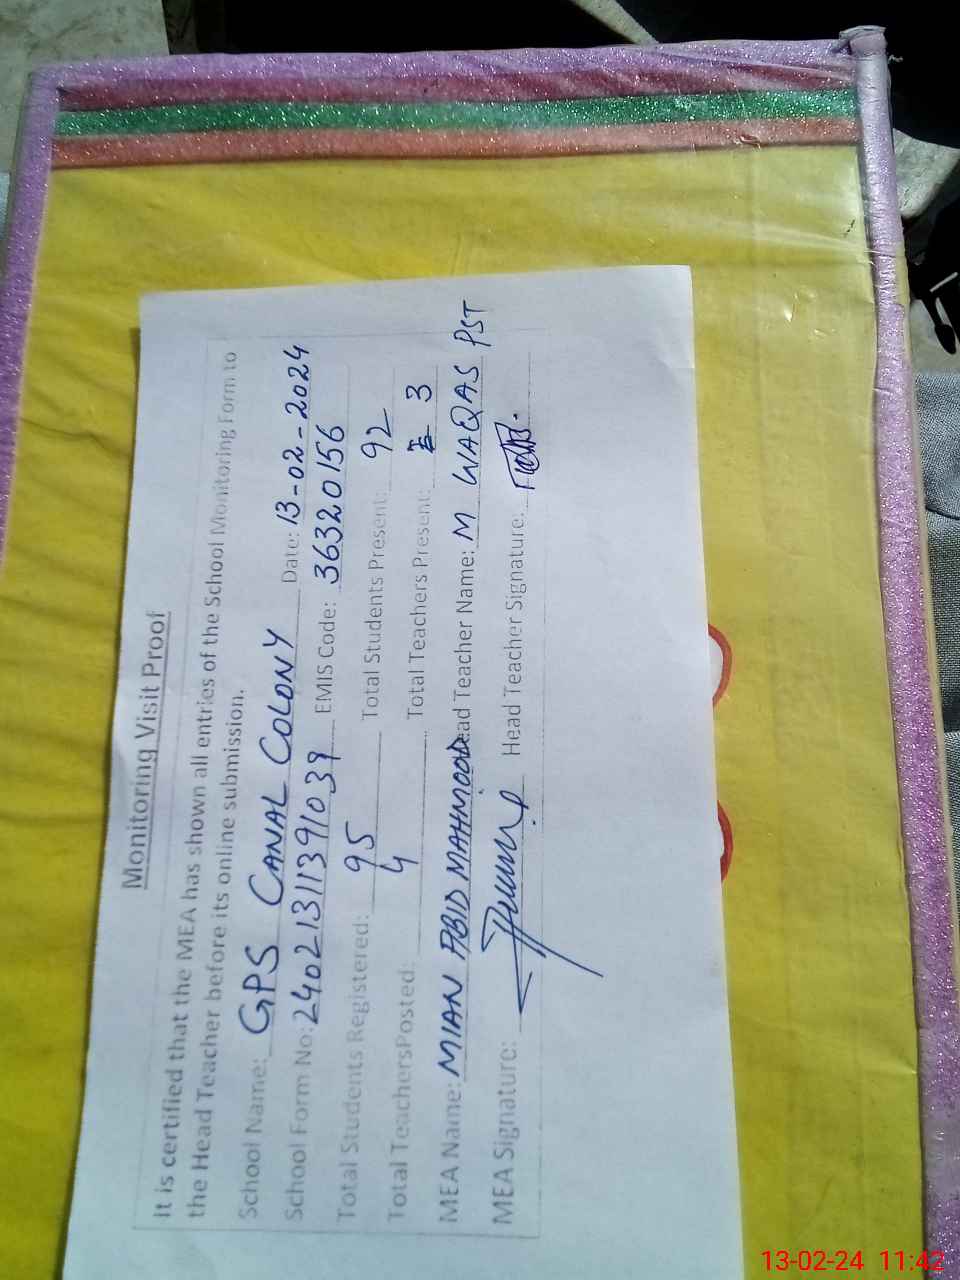 Monitoring Visit Proof
It is certified that the MEA has shown all entries of the School Monitoring Form to
the Head Teacher before its online submission.
School Name: GPS CANAL COLONY Date: 13-02-2024
School Form No: 24021311391039 EMIS Code: 36320156
Total Students Registered: 95 Total Students Present: 92
Total TeachersPosted: 4 Total Teachers Present: 3
MEA Name: MIAN ABID MAHMOOD ead Teacher Name: M WAQAS PST
MEA Signature: Head Teacher Signature:
13-02-24 11:42